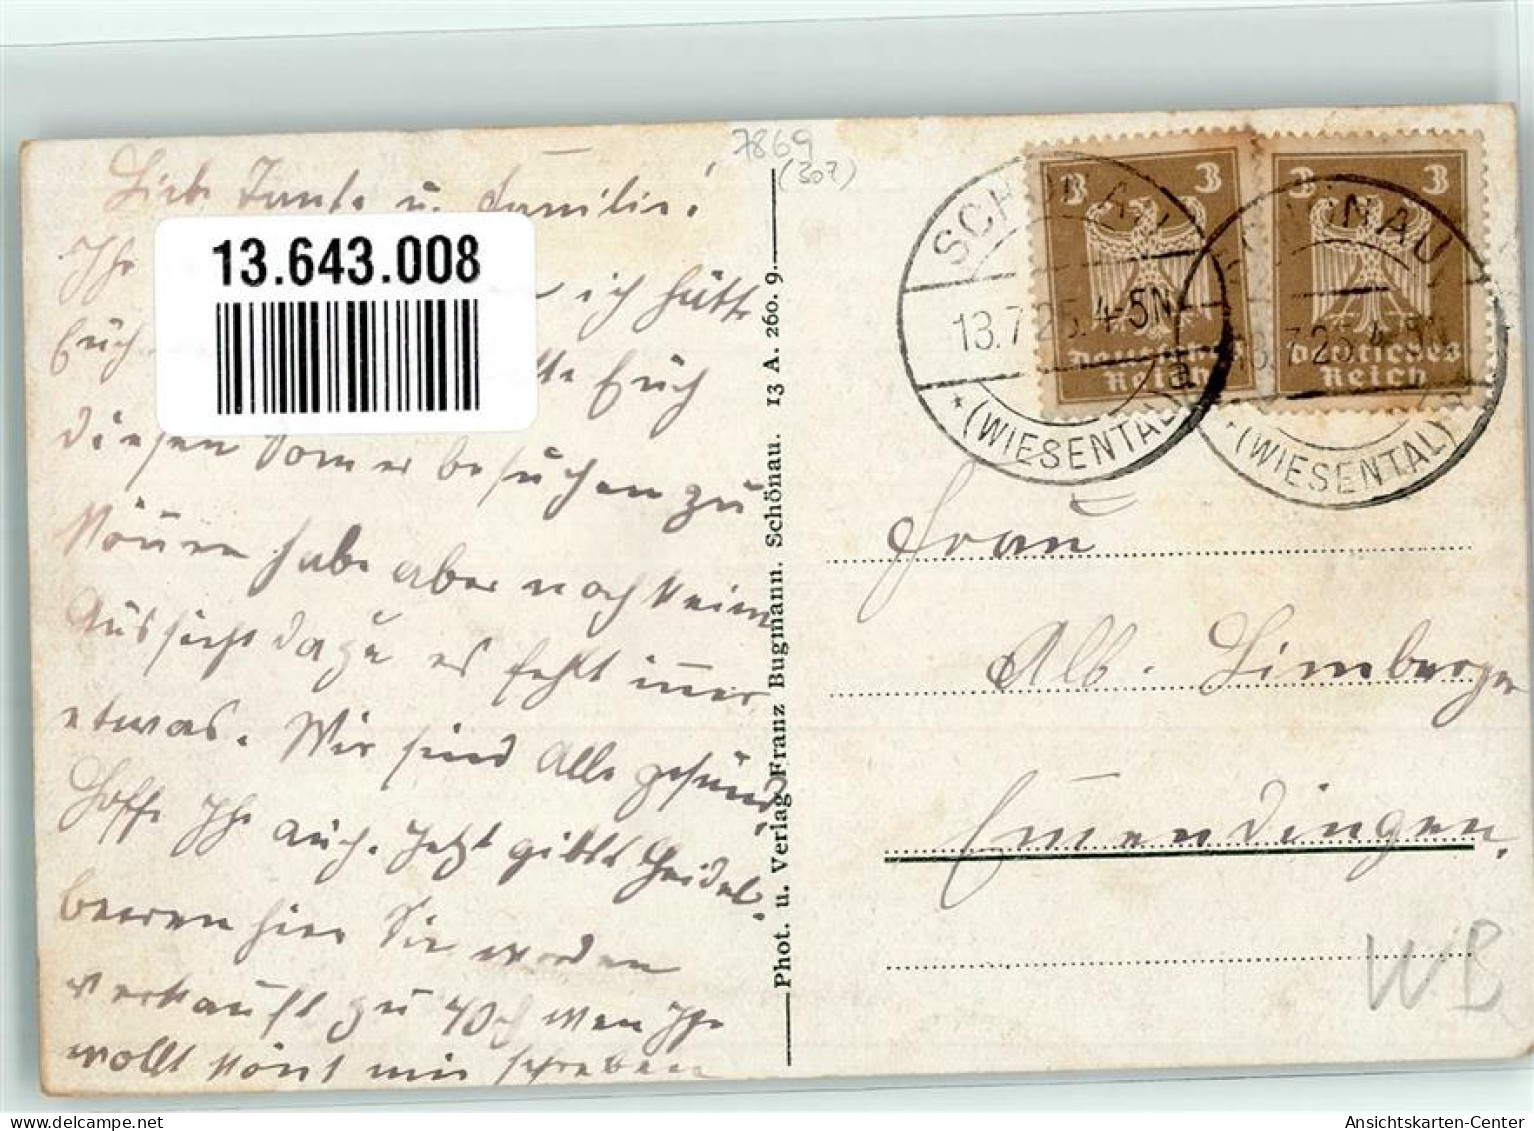 7869
(307)
Liebe Tante u. Familie!
Ihr
13.643.008
ich hätte
Euch
Euch
diesen Sommer besuchen zu
können habe aber noch keine
Aussicht dazu es fehlt immer
etwas. Wir sind Alle gesund
Hoffe Ihr auch. Jetzt gibts Heidel-
beeren hier Sie werden
verkauft zu 40 wen Ihr
wollt könt mir schreiben
Phot. u. Verlag Franz Bugmann. Schönau. 13 A. 260. 9.
3 3
Deutsches
Reich
3 3
Deutsches
Reich
SCHÖNAU
13.7.25.4-5N
a
* (WIESENTAL)
SCHÖNAU
13.7.25.4-5N
* (WIESENTAL)
Frau
Alb. Limberger
Emmendingen.
WB
Ansichtskarten-Center